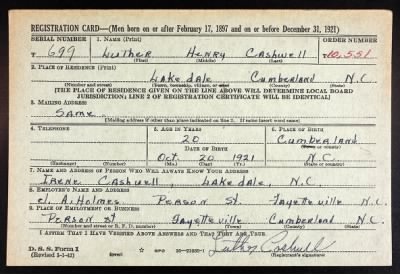 REGISTRATION CARD—(Men born on or after February 17, 1897 and on or before December 31, 1921)
SERIAL NUMBER 1. NAME (Print) ORDER NUMBER
T 699 Luther Henry Cashwell 10,551
(First) (Middle) (Last)
2. PLACE OF RESIDENCE (Print)
Lakedale Cumberland N.C.
(Number and street) (Town, township, village, or city) (County) (State)
[THE PLACE OF RESIDENCE GIVEN ON THE LINE ABOVE WILL DETERMINE LOCAL BOARD
JURISDICTION; LINE 2 OF REGISTRATION CERTIFICATE WILL BE IDENTICAL]
3. MAILING ADDRESS
Same
[Mailing address if other than place indicated on line 2. If same insert word same]
4. TELEPHONE 5. AGE IN YEARS 6. PLACE OF BIRTH
20 Cumberland
DATE OF BIRTH (Town or county)
Oct 20 1921 N.C.
(Exchange) (Number) (Mo.) (Day) (Yr.) (State or country)
7. NAME AND ADDRESS OF PERSON WHO WILL ALWAYS KNOW YOUR ADDRESS
Irene Cashwell, Lakedale, N.C.
8. EMPLOYER'S NAME AND ADDRESS
J. A. Holmes Person St Fayetteville N.C.
9. PLACE OF EMPLOYMENT OR BUSINESS
Person St Fayetteville Cumberland N.C.
(Number and street or R. F. D. number) (Town) (County) (State)
I AFFIRM THAT I HAVE VERIFIED ABOVE ANSWERS AND THAT THEY ARE TRUE.
D. S. S. Form 1
(Revised 1-1-42) Luther Cashwell
(Registrant's signature)